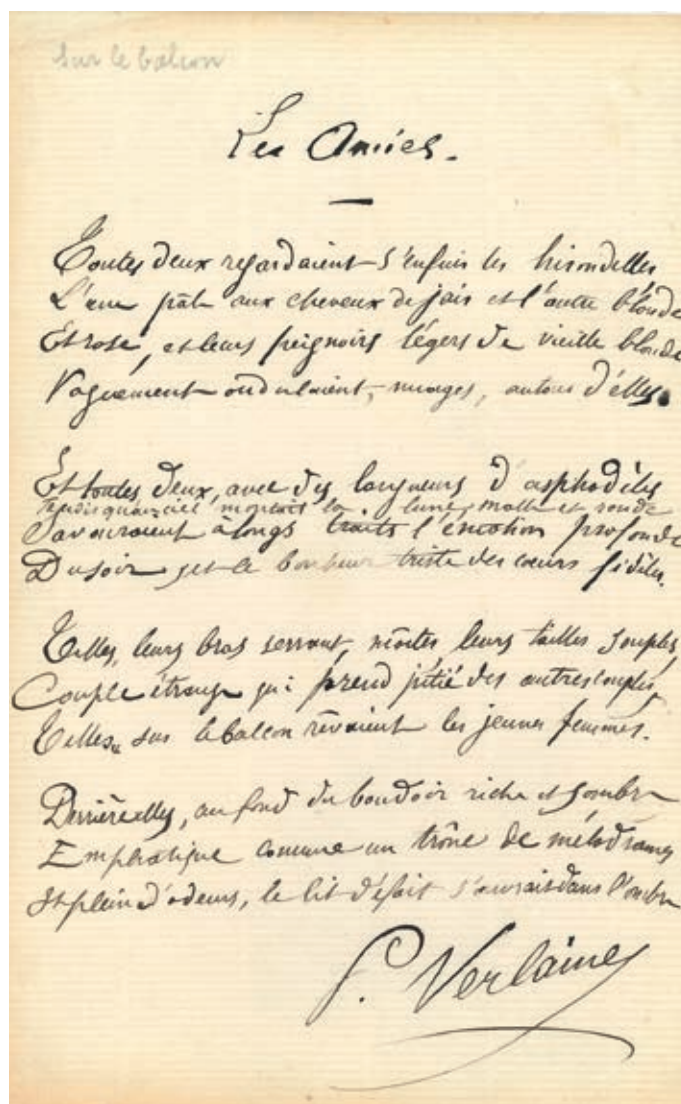 Sur le balcon
Les Amies.
Toutes deux regardaient s'enfuir les hirondelles
L'une pâle aux cheveux de jais et l'autre blonde
Et rose, et leurs peignoirs légers de vieille blonde
Vaguement ondulaient, nuages, autour d'elles.
Et toutes deux, avec des langueurs d'asphodèles
Tandis qu'au ciel montait la lune, molle et ronde
Savouraient à longs traits l'émotion profonde
Du soir, et le bonheur triste des cœurs fidèles.
Telles, leurs bras serrant, moites, leurs tailles souples,
Couple étrange qui prend pitié des autres couples,
Telles, sur le balcon rêvaient les jeunes femmes.
Derrière elles, au fond du boudoir riche et sombre
Emphatique comme un trône de mélodrames
Et plein d'odeurs, le lit défait s'ouvrait dans l'ombre
P. Verlaine